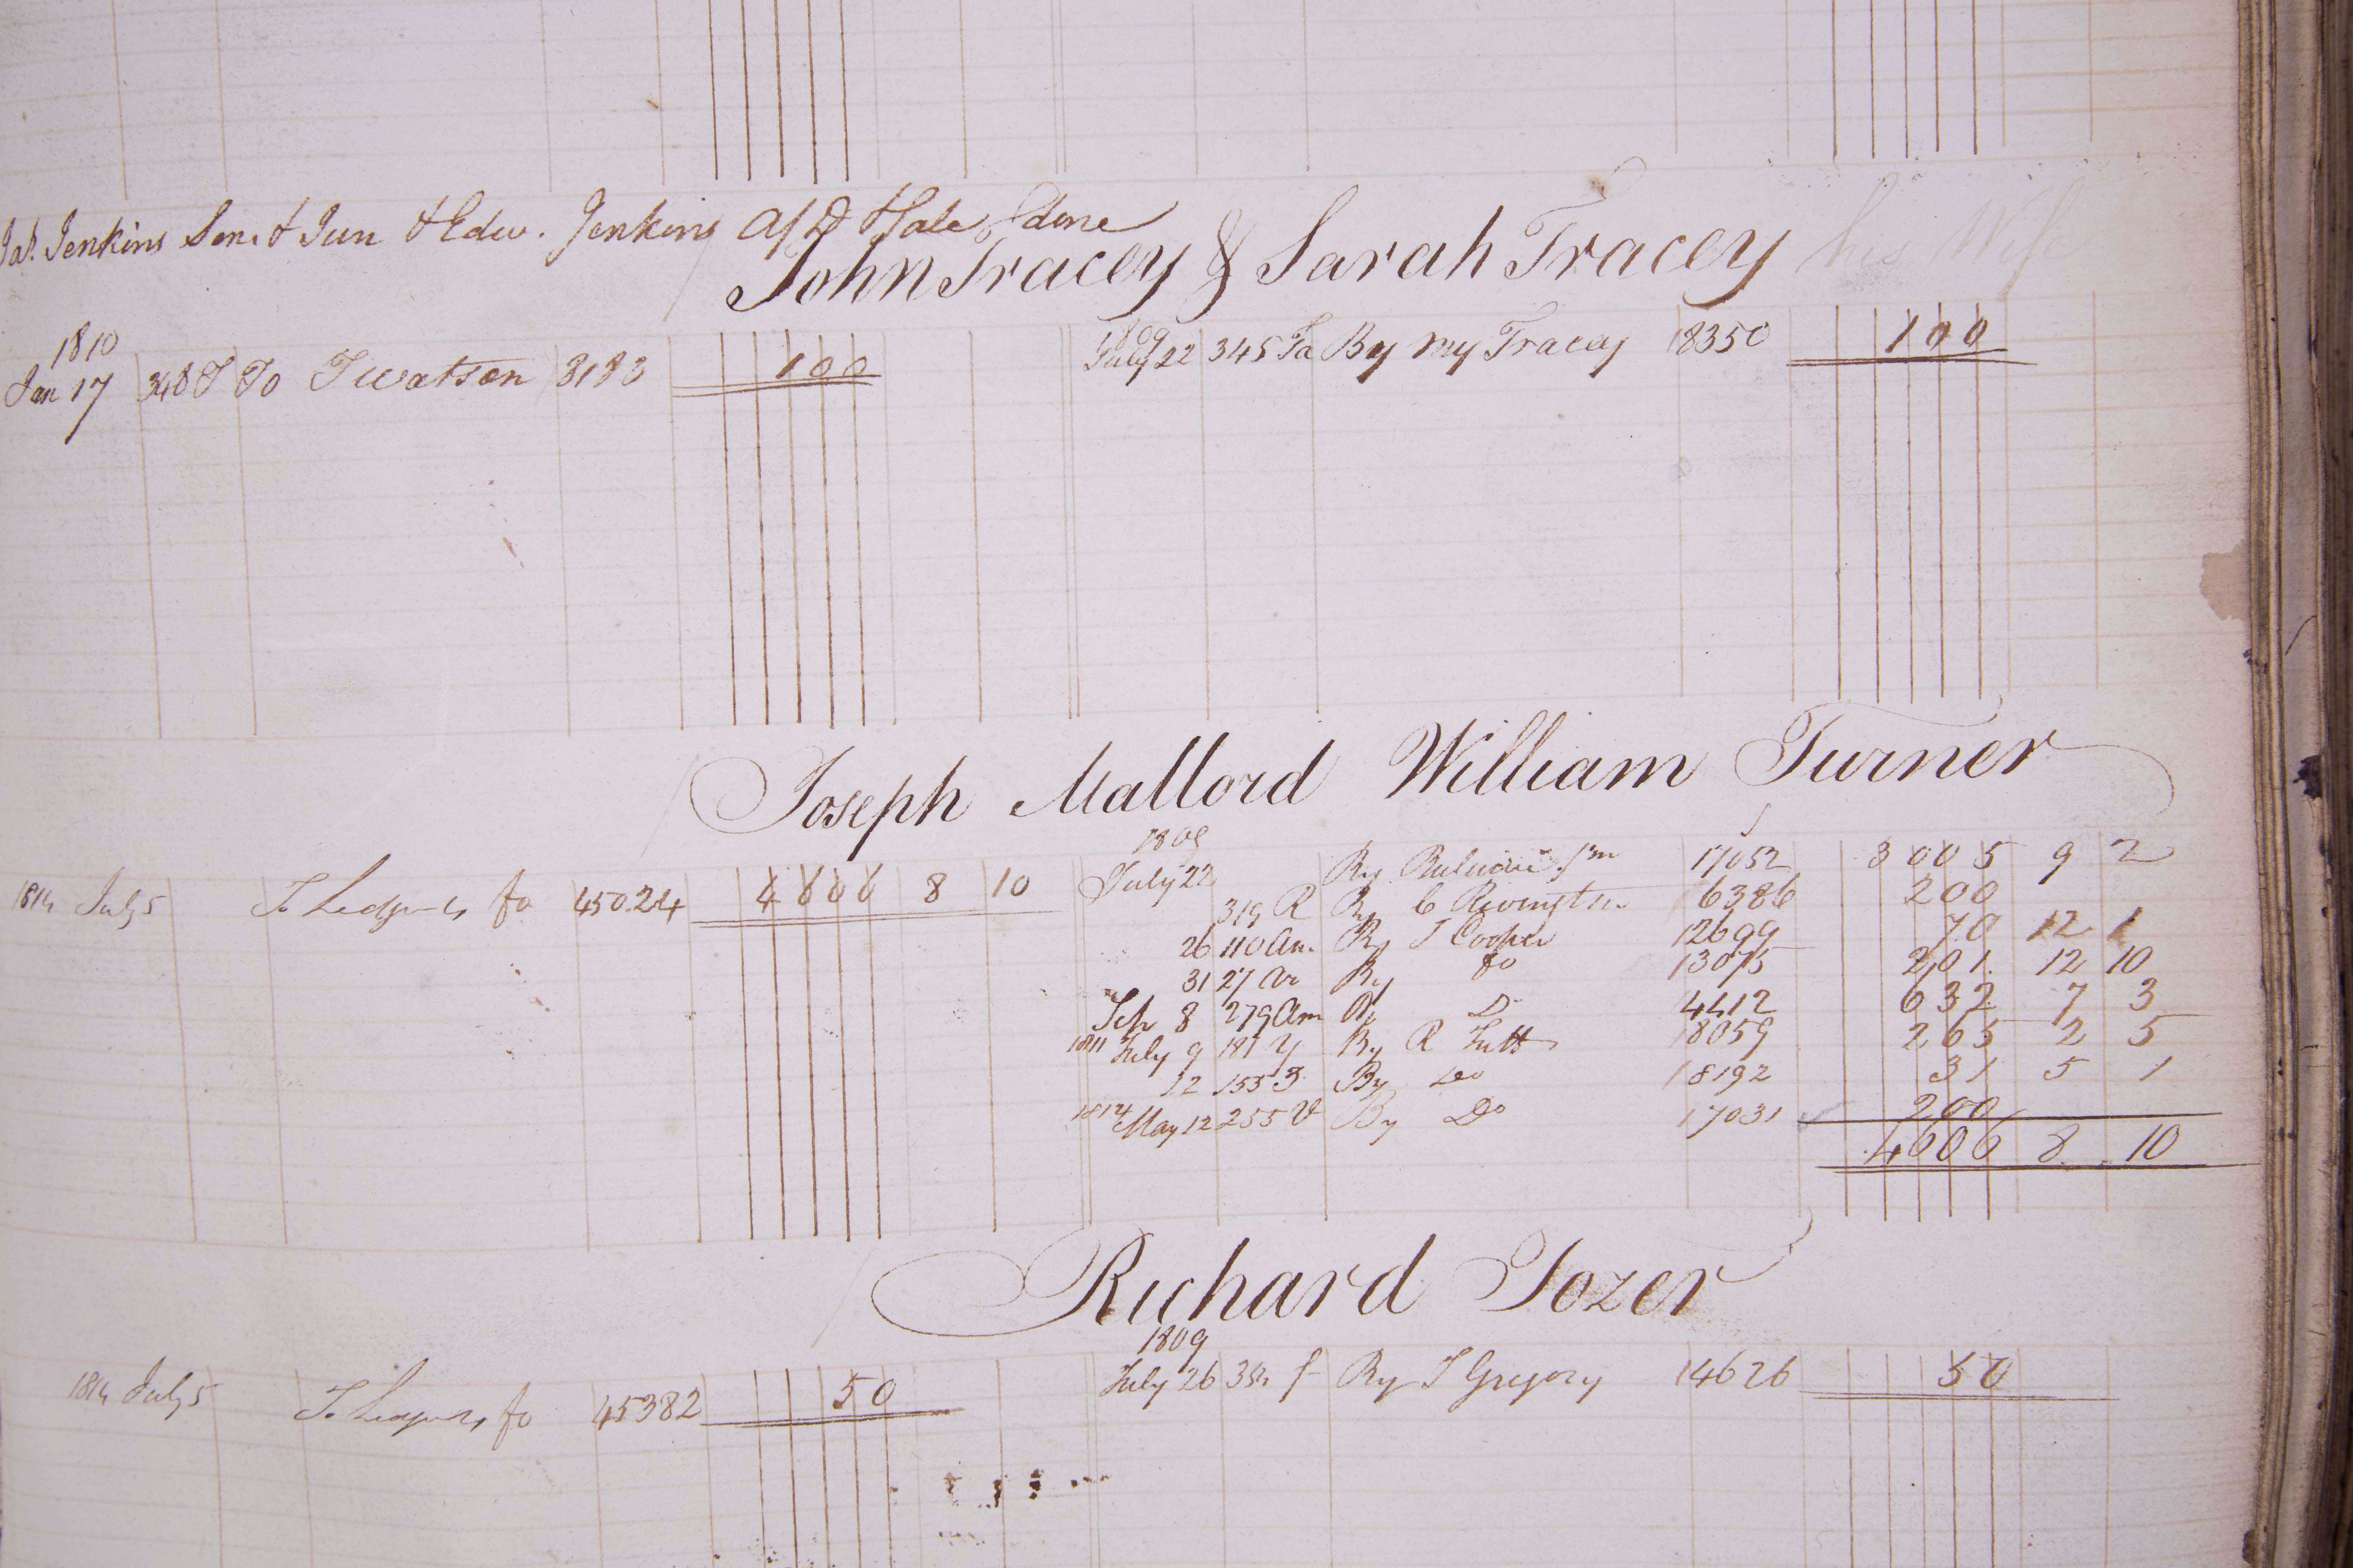 Jas. Jenkins Sen. & Jun & Edw. Jenkins
John Tracey & Sarah Tracey his Wife
1810
Jan 17 To T Watson 3183 100
1809
July 22 345 Ta By My Tracey 18350 100
Joseph Mallord William Turner
1809
July 22 By 17052 3005 9 2
319 R By C Rivington 6386 200
26 110 Am By J Cooper 12699 70 12 1
31 27 By Do 13075 201 12 10
Sep 8 279 Am By Do 4412 632 7 3
1811 July 9 181 Y By R Tutt 18059 265 2 5
12 153 By Do 18192 31 5 1
1814 May 12 255 V By Do 17031 200
4606 8 10
1814 July 5 To Ledger fo 45024 4606 8 10
Richard Tozer
1809
July 26 By J Gregory 14626 50
1814 July 5 To Ledger fo 45382 50